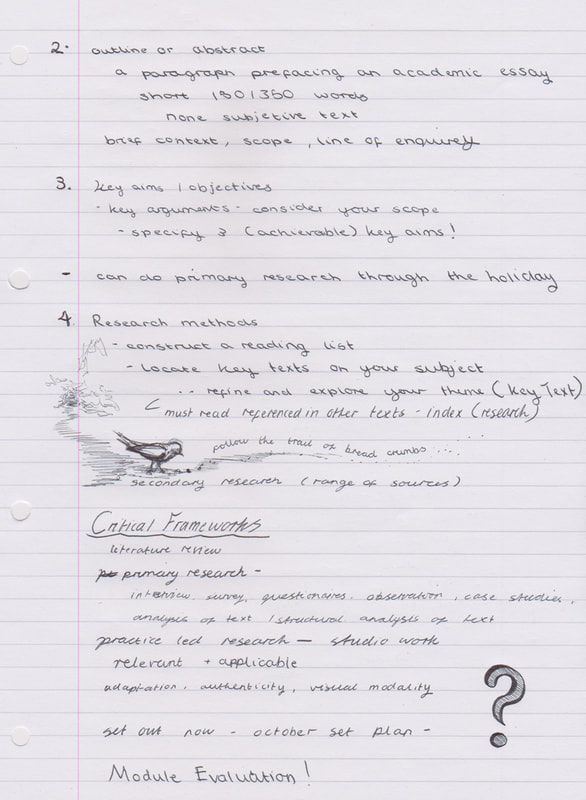 2. outline or abstract
a paragraph prefacing an academic essay
short 150 / 350 words
none subjetive text
brief context, scope, line of enquirey
3. Key aims / objectives
- key arguments - consider your scope
- specify 3 (achievable) key aims!
- can do primary research through the holiday
4. Research methods
- construct a reading list
- Locate key texts on your subject
- - refine and explore your theme (key Text)
must read referenced in other texts - index (research)
follow the trail of bread crumbs ...
secondary research (range of sources)
Critical Frameworks
literature review
primary research -
interview, survey, questionaires, observation, case studies,
analysis of text / structural analysis of text
practice led research — studio work
relevant + applicable
adaptation, authenticity, visual modality
?
set out now - october set plan -
Module Evaluation!